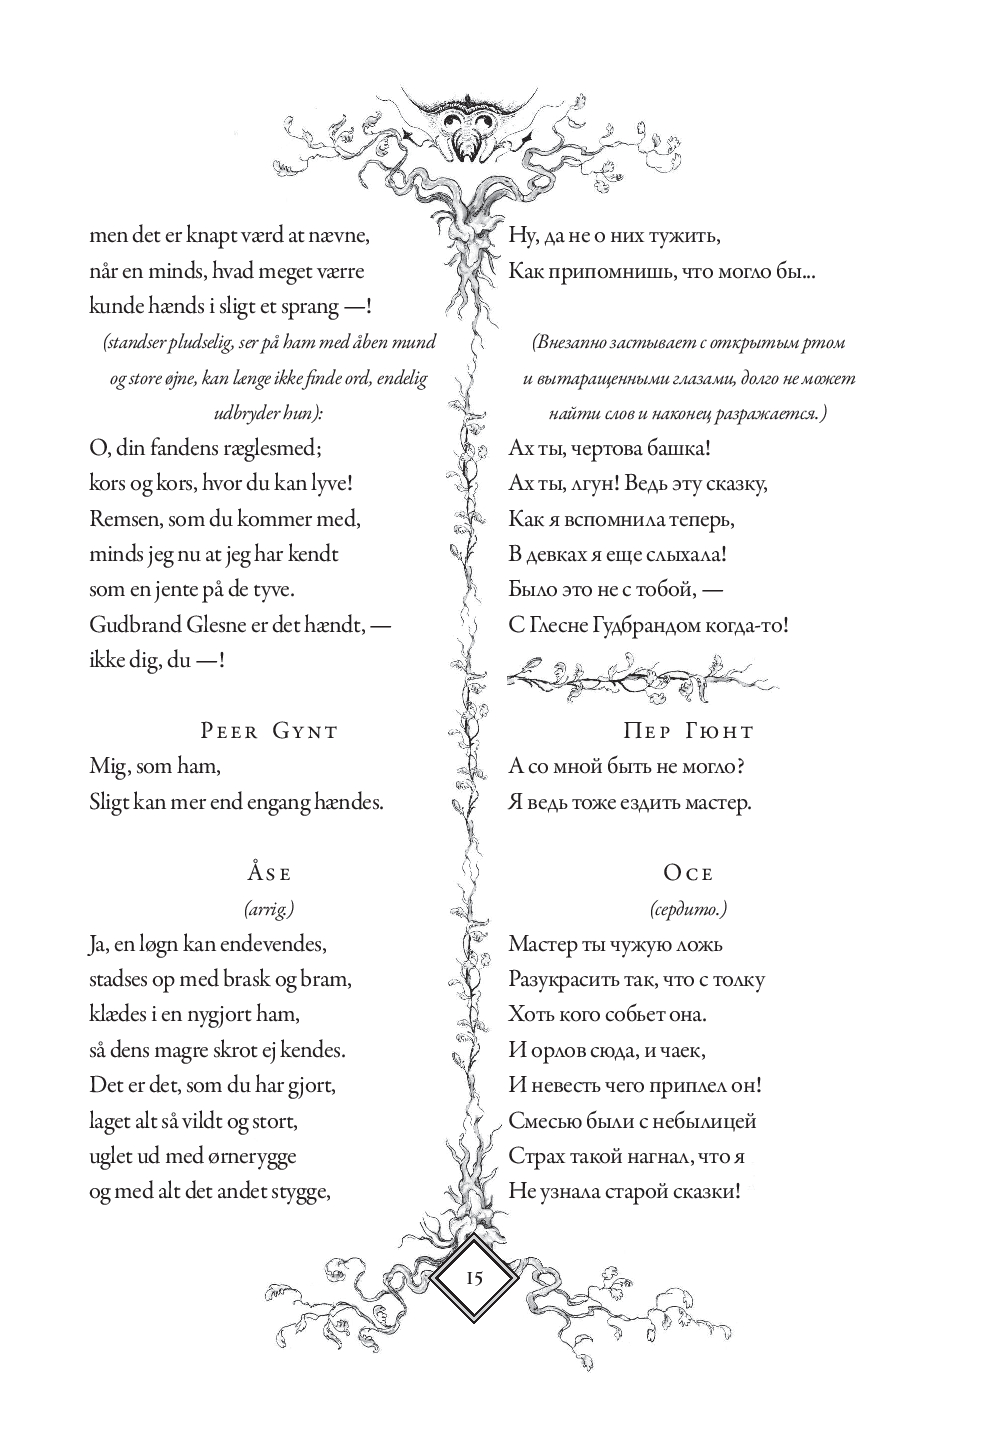 men det er knapt værd at nævne,
når en minds, hvad meget værre
kunde hænds i sligt et sprang —!
(standser pludselig, ser på ham med åben mund
og store øjne, kan længe ikke finde ord, endelig
udbryder hun):
O, din fandens ræglesmed;
kors og kors, hvor du kan lyve!
Remsen, som du kommer med,
minds jeg nu at jeg har kendt
som en jente på de tyve.
Gudbrand Glesne er det hændt, —
ikke dig, du —!
Peer Gynt
Mig, som ham,
Sligt kan mer end engang hændes.
Åse
(arrig.)
Ja, en løgn kan endevendes,
stadses op med brask og bram,
klædes i en nygjort ham,
så dens magre skrot ej kendes.
Det er det, som du har gjort,
laget alt så vildt og stort,
uglet ud med ørnerygge
og med alt det andet stygge,
Ну, да не о них тужить,
Как припомнишь, что могло бы...
(Внезапно застывает с открытым ртом
и вытаращенными глазами, долго не может
найти слов и наконец разражается.)
Ах ты, чертова башка!
Ах ты, лгун! Ведь эту сказку,
Как я вспомнила теперь,
В девках я еще слыхала!
Было это не с тобой, —
С Глесне Гудбрандом когда-то!
Пер Гюнт
А со мной быть не могло?
Я ведь тоже ездить мастер.
Осе
(сердито.)
Мастер ты чужую ложь
Разукрасить так, что с толку
Хоть кого собьет она.
И орлов сюда, и чаек,
И невесть чего приплел он!
Смесью были с небылицей
Страх такой нагнал, что я
Не узнала старой сказки!
15